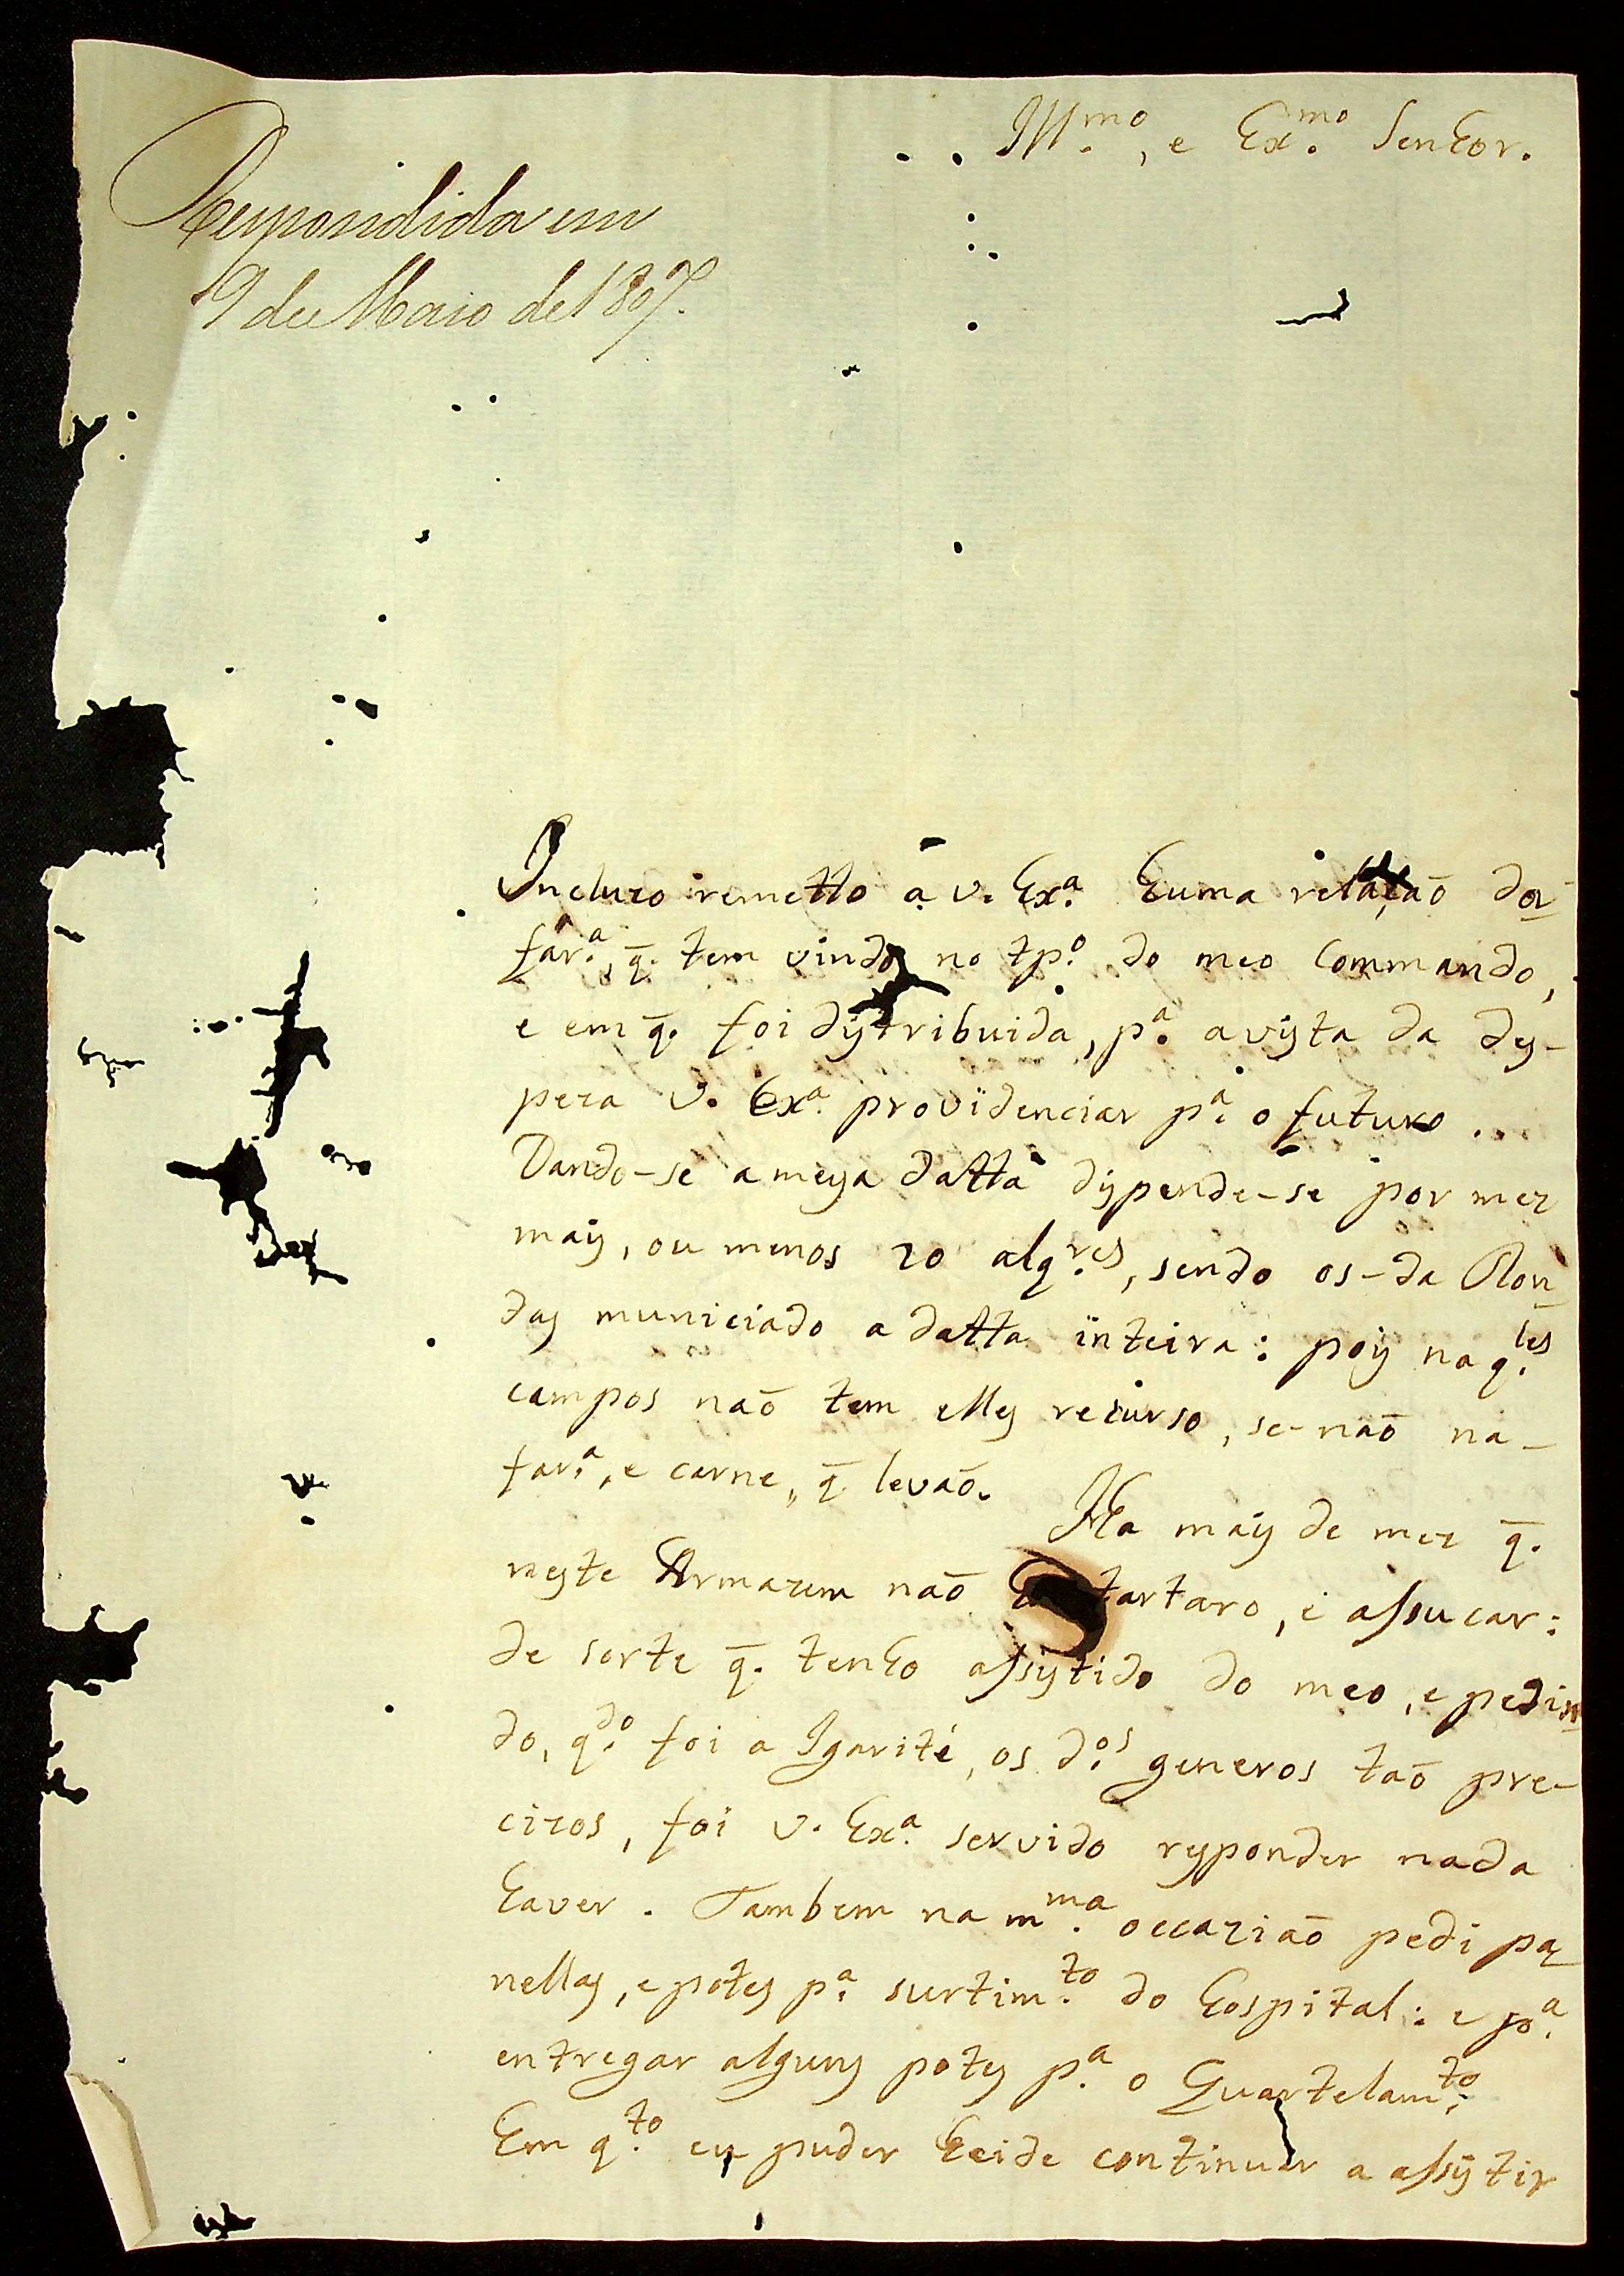 Ill.mo, e Ex.mo Senhor.
Respondida em
19 de Maio de 1807.
Incluzo remetto a V. Ex.a huma relação da
far.a, q̄. tem vindo no tp.o do meo Commando,
e em q̄. foi distribuida, p.a a vista da des-
peza V. Ex.a providenciar p.a o futuro.
Dando-se a meya datta dispende-se por mez
mais, ou menos 20 alq.res, sendo os-da Ron-
das municiado a datta inteira: pois naq.les
campos naõ tem elles recurso, se-naõ na-
far.a, e carne, q̄ levaõ.
Ha mais de mez q̄.
neste Armazem naõ tartaro, e assucar:
de sorte q̄. tenho assistido do meo, e pedin-
do, q.do foi a Igarité, os d.os generos taõ pre-
cizos, foi V. Ex.a servido responder nada
haver. Tambem na m.ma occaziaõ pedi pa-
nellas, e potes p.a surtim.to do hospital: e p.a
entregar alguns potes p.a o Quartelam.to
Em q.to eu puder heide continuar a assistir